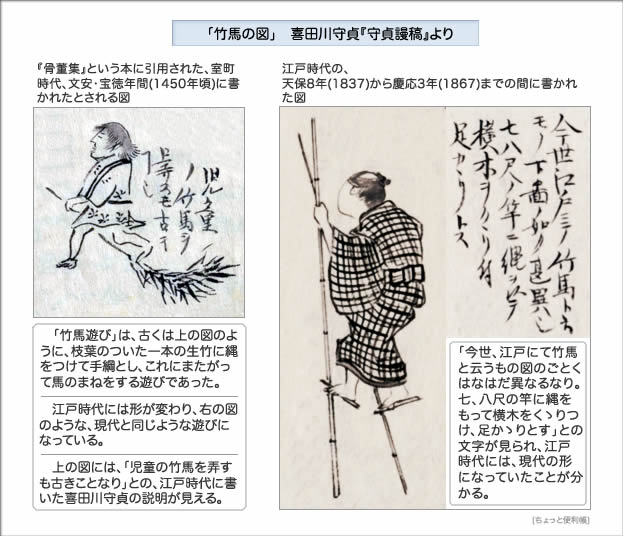 「竹馬の図」 喜田川守貞『守貞謾稿』より
『骨董集』という本に引用された、室町
時代、文安・宝徳年間(1450年頃)に書
かれたとされる図
児童
ノ竹馬ヲ
弄スモ古キ
「竹馬遊び」は、古くは上の図のよ
うに、枝葉のついた一本の生竹に縄
をつけて手綱とし、これにまたがっ
て馬のまねをする遊びであった。
江戸時代には形が変わり、右の図
のような、現代と同じような遊びに
なっている。
上の図には、「児童の竹馬を弄す
も古きことなり」との、江戸時代に書
いた喜田川守貞の説明が見える。
江戸時代の、
天保8年(1837)から慶応3年(1867)までの間に書かれ
た図
今世江戸ニテ竹馬ト云
モノ下図ノ如ク甚異
七八尺ノ竿ニ縄ヲ以テ
横木ヲクヽリ付
足カヽリトス
「今世、江戸にて竹馬
と云うもの図のごとく
はなはだ異なるなり。
七、八尺の竿に縄を
もって横木をくゝりつ
け、足かゝりとす」との
文字が見られ、江戸
時代には、現代の形
になっていたことが分
かる。
[ちょっと便利帳]